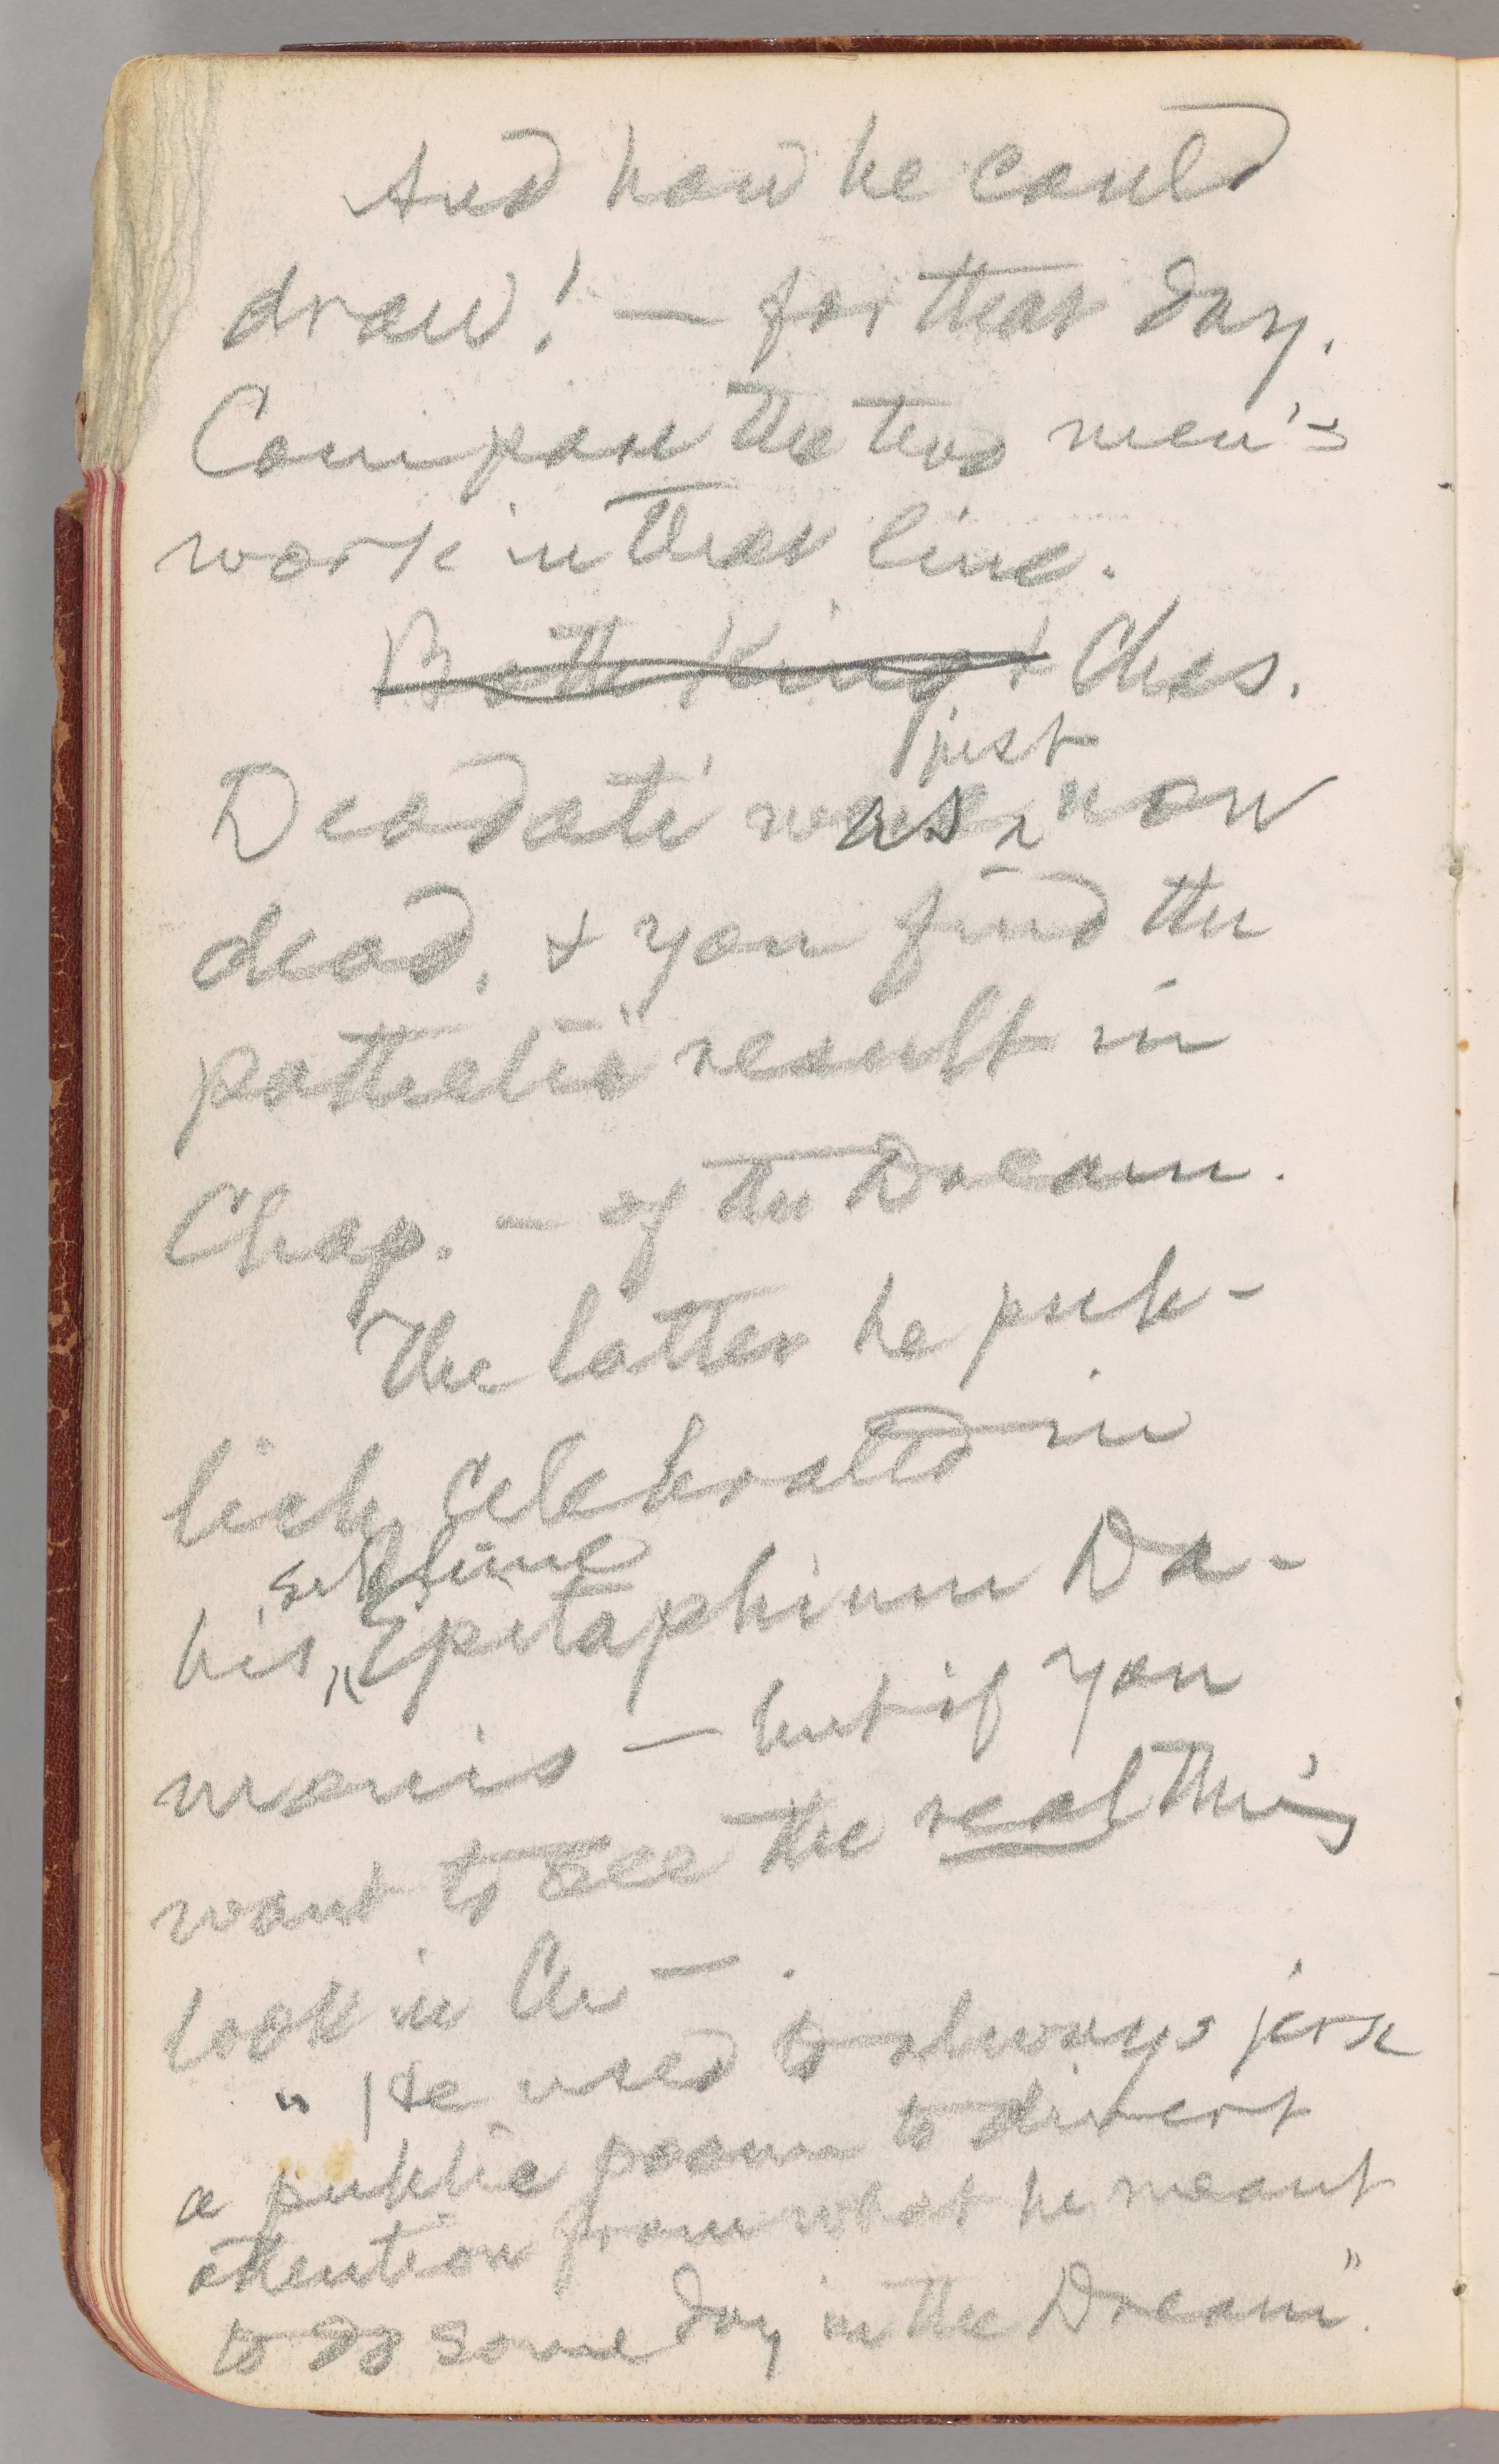 And how he could
draw! — for that day.
Compare the two men's
work in that line.
Both King & Chas.
just
Deodati was now
dead, & you find the
pathetic result in
Chap. — of the Dream.
The latter he pub-
licly celebrated in
sublime
his Epitaphium Da-
monis — but if you
want to see the real thing
look in Ch — .
" He used to always jerk
a public poem to divert
attention from what he meant
to do some day in the Dream".